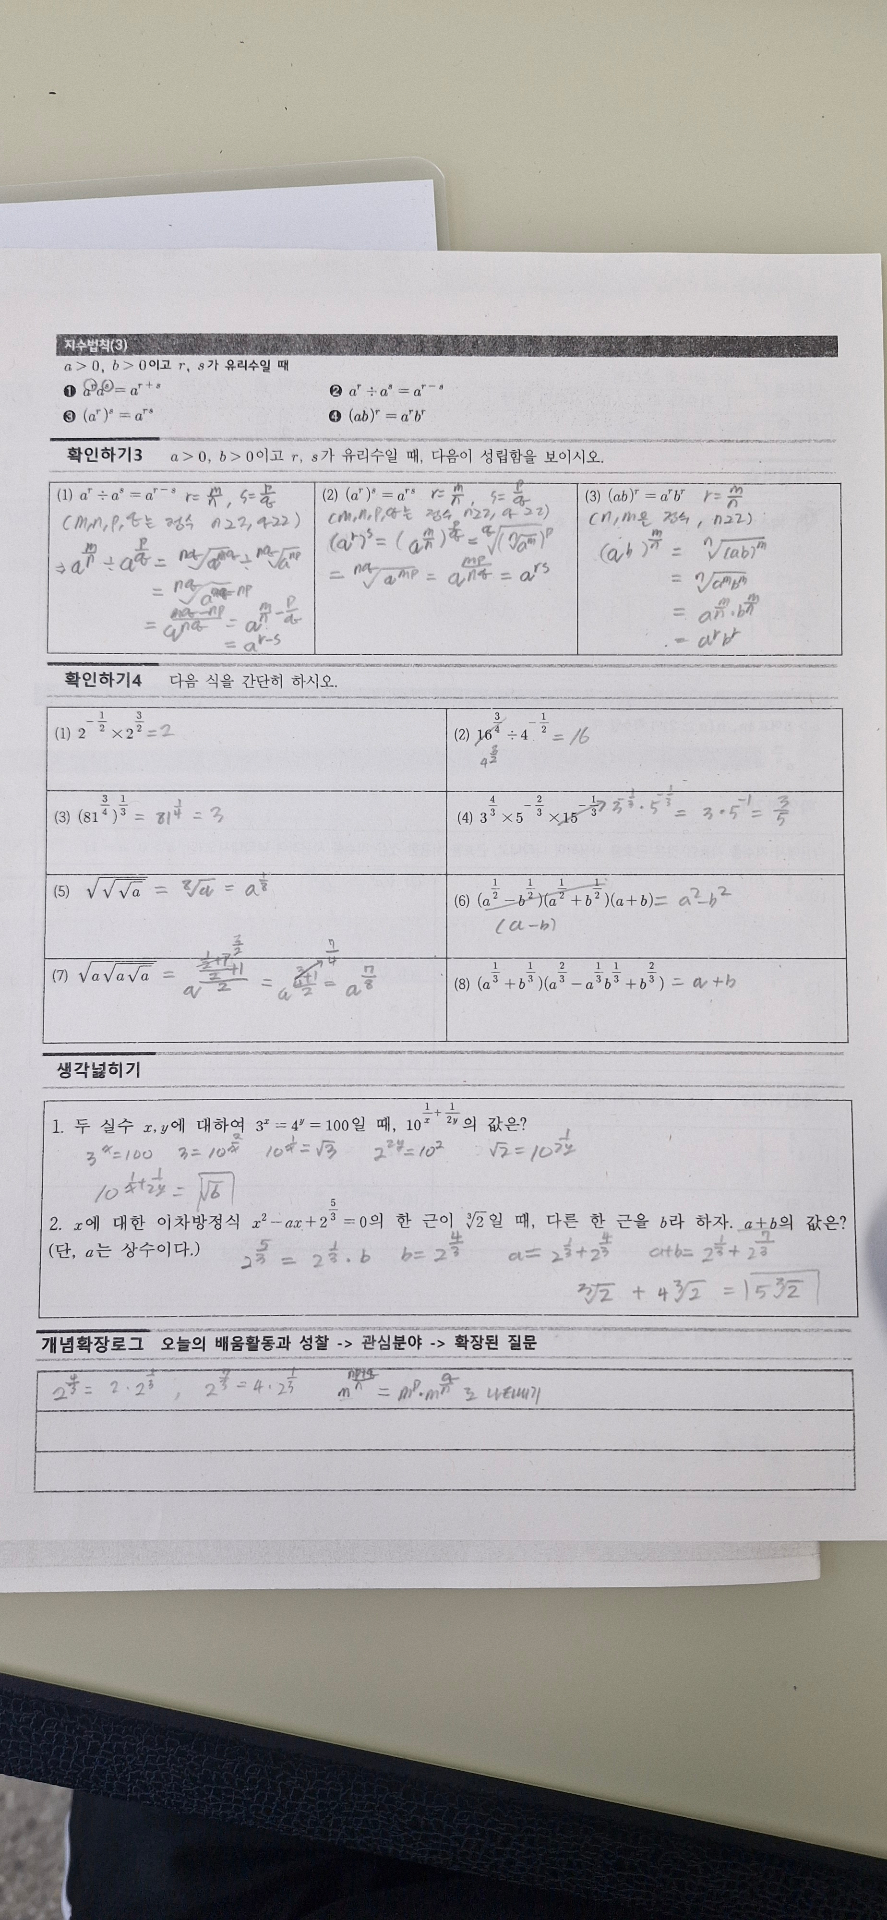 지수법칙(3)
a>0, b>0이고 r, s가 유리수일 때
❶ a^r a^s = a^{r+s} ❷ a^r ÷ a^s = a^{r-s}
❸ (a^r)^s = a^{rs} ❹ (ab)^r = a^r b^r
확인하기3 a>0, b>0이고 r, s가 유리수일 때, 다음이 성립함을 보이시오.
(1) a^r ÷ a^s = a^{r-s} r = m/n, s = p/q
(m,n,p,q는 정수 n≥2, q≥2)
⇒ a^{m/n} ÷ a^{p/q} = ^{nq}√a^{mq} ÷ ^{nq}√a^{np}
= ^{nq}√a^{mq-np}
= a^{(mq-np)/nq} = a^{m/n - p/q}
= a^{r-s}
(2) (a^r)^s = a^{rs} r = m/n, s = p/q
(m,n,p,q는 정수 n≥2, q≥2)
(a^r)^s = (a^{m/n})^{p/q} = ^q√(^n√a^m)^p
= ^{nq}√a^{mp} = a^{mp/nq} = a^{rs}
(3) (ab)^r = a^r b^r r = m/n
(n,m은 정수, n≥2)
(ab)^{m/n} = ^n√(ab)^m
= ^n√a^m b^m
= a^{m/n}·b^{m/n}
= a^r b^r
확인하기4 다음 식을 간단히 하시오.
(1) 2^{-1/2} × 2^{3/2} = 2
(2) 16^{3/4} ÷ 4^{-1/2} = 16
4^{3/2}
(3) (81^{3/4})^{1/3} = 81^{1/4} = 3
(4) 3^{4/3} × 5^{-2/3} × 15^{-1/3} → 3^{-1/3}·5^{-1/3} = 3·5^{-1} = 3/5
(5) √√√a = ^8√a = a^{1/8}
(6) (a^{1/2} - b^{1/2})(a^{1/2} + b^{1/2})(a+b) = a²-b²
(a-b)
(7) √a√a√a = a^{((1/2+1)/2+1)/2} 3/2 = a^{(3/4+1)/2} 7/4 = a^{7/8}
(8) (a^{1/3} + b^{1/3})(a^{2/3} - a^{1/3}b^{1/3} + b^{2/3}) = a+b
생각넓히기
1. 두 실수 x, y에 대하여 3^x = 4^y = 100일 때, 10^{1/x + 1/2y}의 값은?
3^x=100 3=10^{2/x} 10^{1/x}=√3 2^{2y}=10² √2=10^{1/2y}
10^{1/x+1/2y} = √6
2. x에 대한 이차방정식 x² - ax + 2^{5/3} = 0의 한 근이 ³√2일 때, 다른 한 근을 b라 하자. a+b의 값은?
(단, a는 상수이다.) 2^{5/3} = 2^{1/3}·b b=2^{4/3} a=2^{1/3}+2^{4/3} a+b=2^{1/3}+2^{7/3}
³√2 + 4³√2 = 5³√2
개념확장로그 오늘의 배움활동과 성찰 -> 관심분야 -> 확장된 질문
2^{4/3} = 2·2^{1/3}, 2^{7/3}=4·2^{1/3} m^{(np+q)/n} = m^p·m^{q/n} 로 나타내기